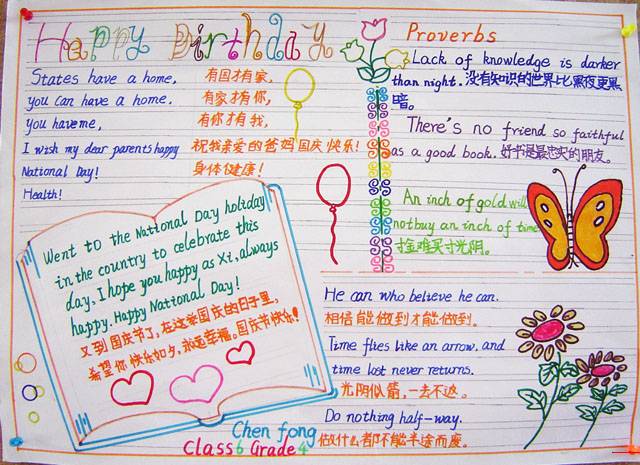 Happy Birthday
States have a home, 有国才有家,
you can have a home. 有家才有你,
You have me, 有你才有我,
I wish my dear parents happy 祝我亲爱的爸妈国庆快乐!
National Day! 身体健康!
Health!
Went to the National Day holiday
in the country to celebrate this
day, I hope you happy as Xi, always
happy. Happy National Day!
又到国庆节了,在这举国庆的日子里,
希望你快乐如夕,永远幸福。国庆节快乐!
Chen fong
Class 6 Grade 4
Proverbs
Lack of knowledge is darker
than night. 没有知识的世界比黑夜更黑
暗。
There's no friend so faithful
as a good book. 好书是最忠实的朋友。
An inch of gold will
notbuy an inch of time
寸金难买寸光阴。
He can who believe he can.
相信能做到才能做到。
Time flies like an arrow, and
time lost never returns.
光阴似箭,一去不返。
Do nothing half-way.
做什么都不能半途而废。